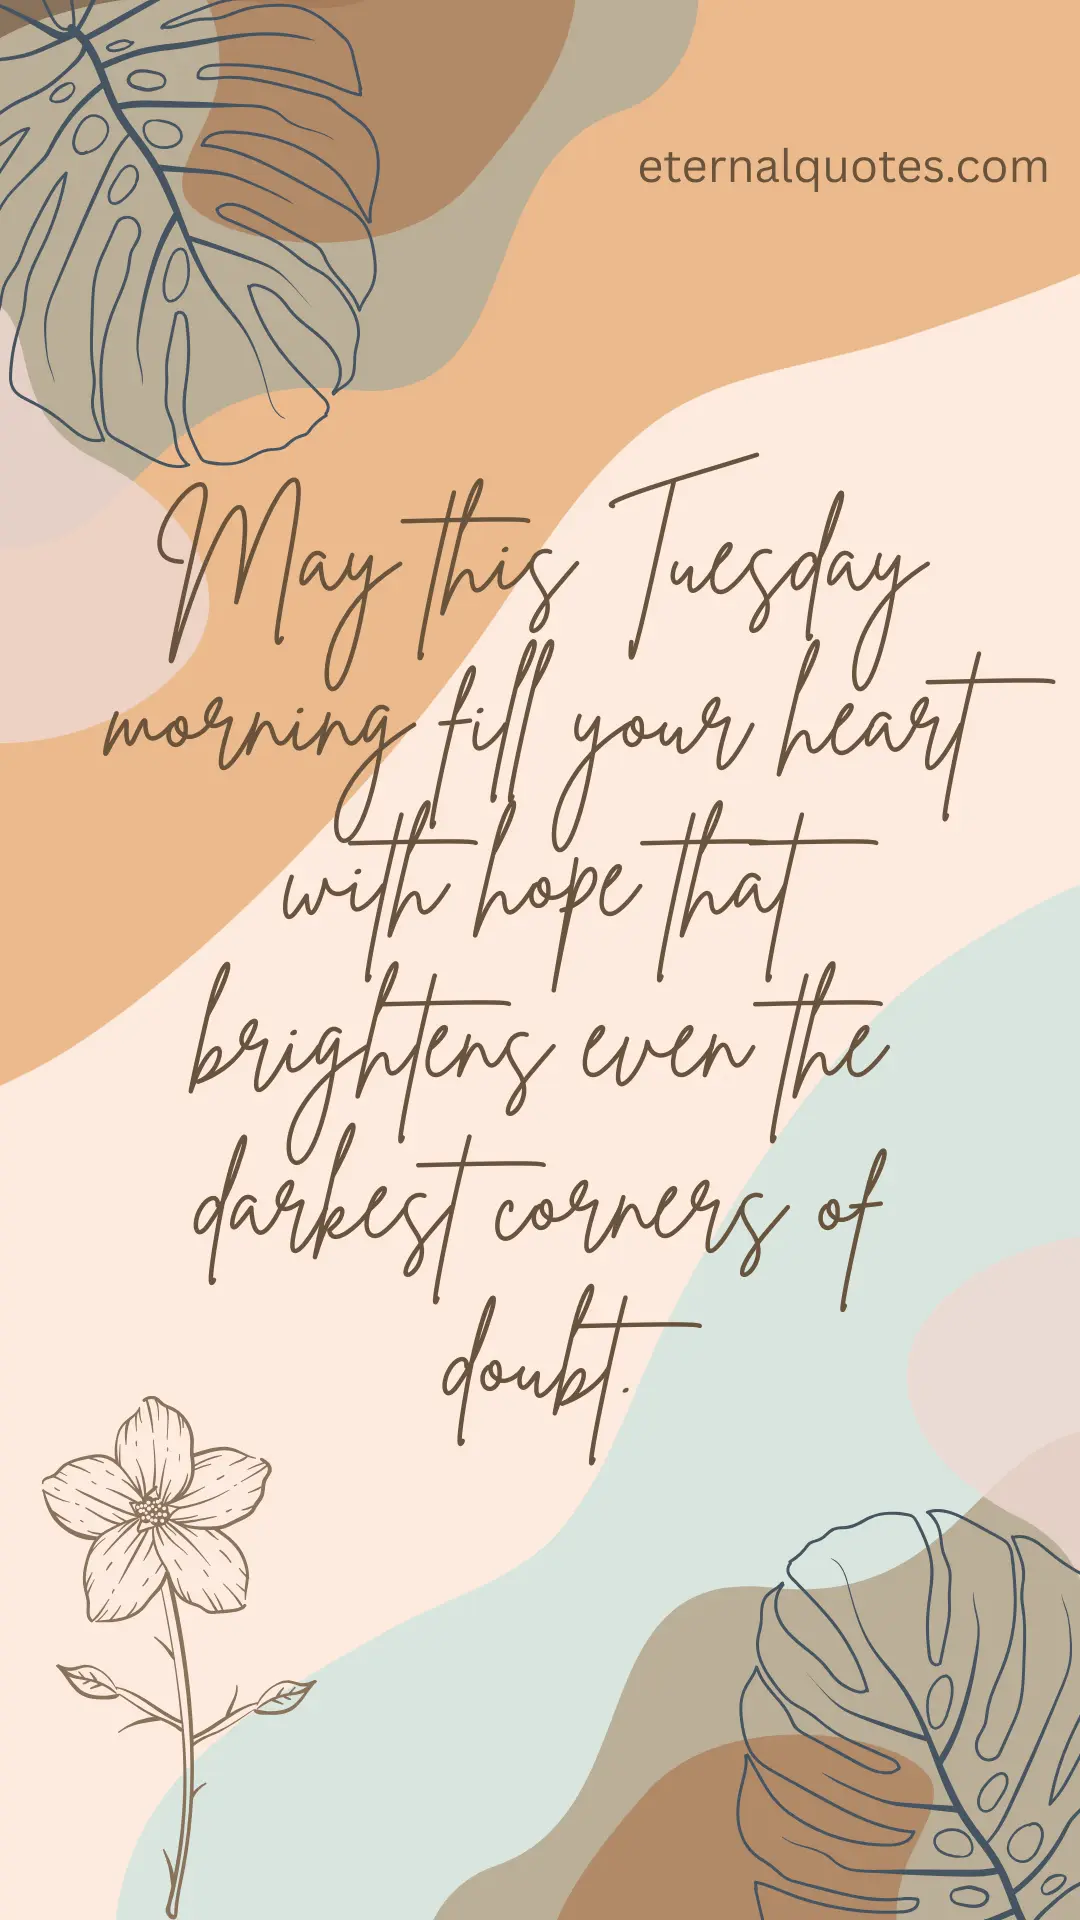 eternalquotes.com
May this Tuesday
morning fill your heart
with hope that
brightens even the
darkest corners of
doubt.